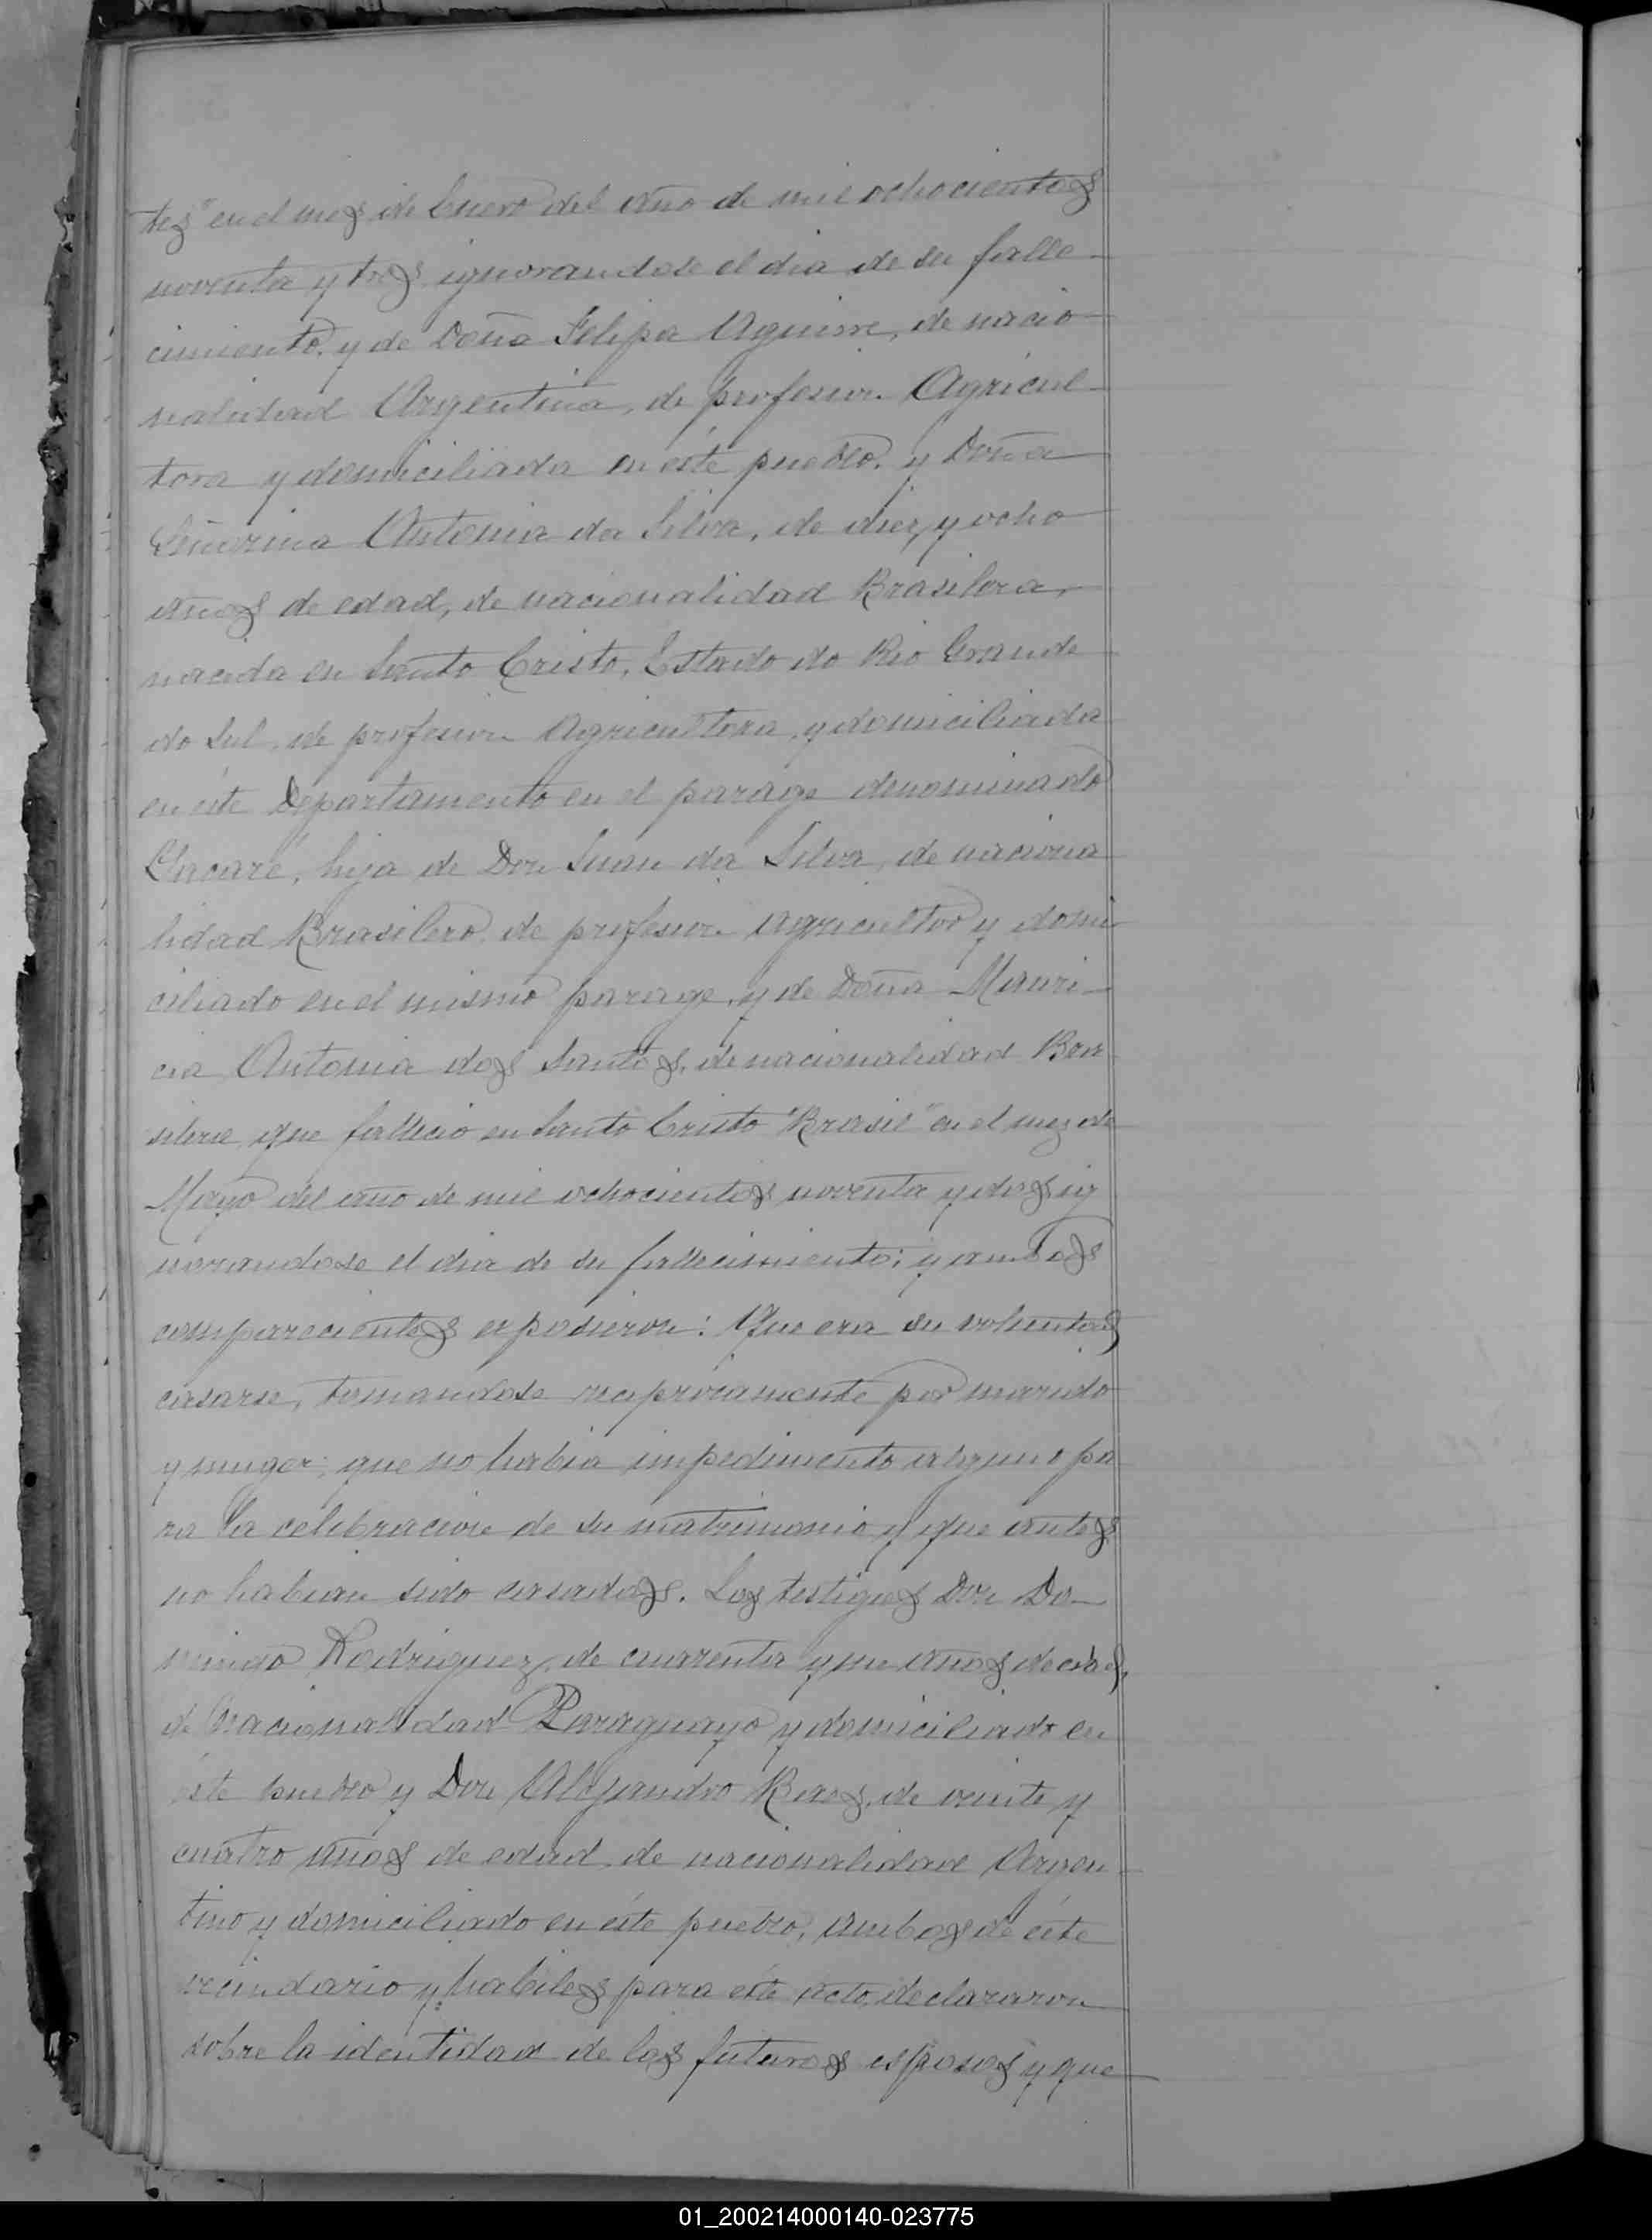 tes" en el mes de Enero del año de mil ochocientos
noventa y tres ignorandose el dia de su falle-
cimiento, y de Doña Felipa Aguirre, de nacio-
nalidad Argentina, de profesion Agricul-
tora y domiciliada en éste pueblo, y Doña
Señorina Antonia da Silva, de diez y ocho
años de edad, de nacionalidad Brasilera,
nacida en Santo Cristo, Estado do Rio Grande
do Sul, de profesion Agricultora, y domiciliada
en éste Departamento en el parage denominado
hija de Don Juan da Silva, de naciona
lidad Brasilero, de profesion Agricultor y domi
ciliado en el mismo parage, y de Doña Mauri-
cia Antonia dos Santos, de nacionalidad Bra
silera que fallecio en Santo Cristo "Brasil" en el mez de
Mayo del año de mil ochocientos noventa y dos ig
norandose el dia de su fallecimiento; y ambos
comparecientes exposieron: Que era su voluntad
casarse, tomandose reciprocamente por marido
y muger; que no habia impedimento alguno pa
ra la celebracion de su matrimonio y que antes
no habian sido casados. Los testigos Don Do-
mingo Rodriguez, de cuarenta y un años de edad,
de nacionalidad Paraguayo y domiciliado en
éste pueblo y Don Alejandro de veinte y
cuatro años de edad, de nacionalidad Argen-
tino y domiciliado en éste pueblo, ambos de éste
vecindario y habiles para éste acto, declararon
sobre la identidad de los futuros esposos y que
01_200214000140-023775